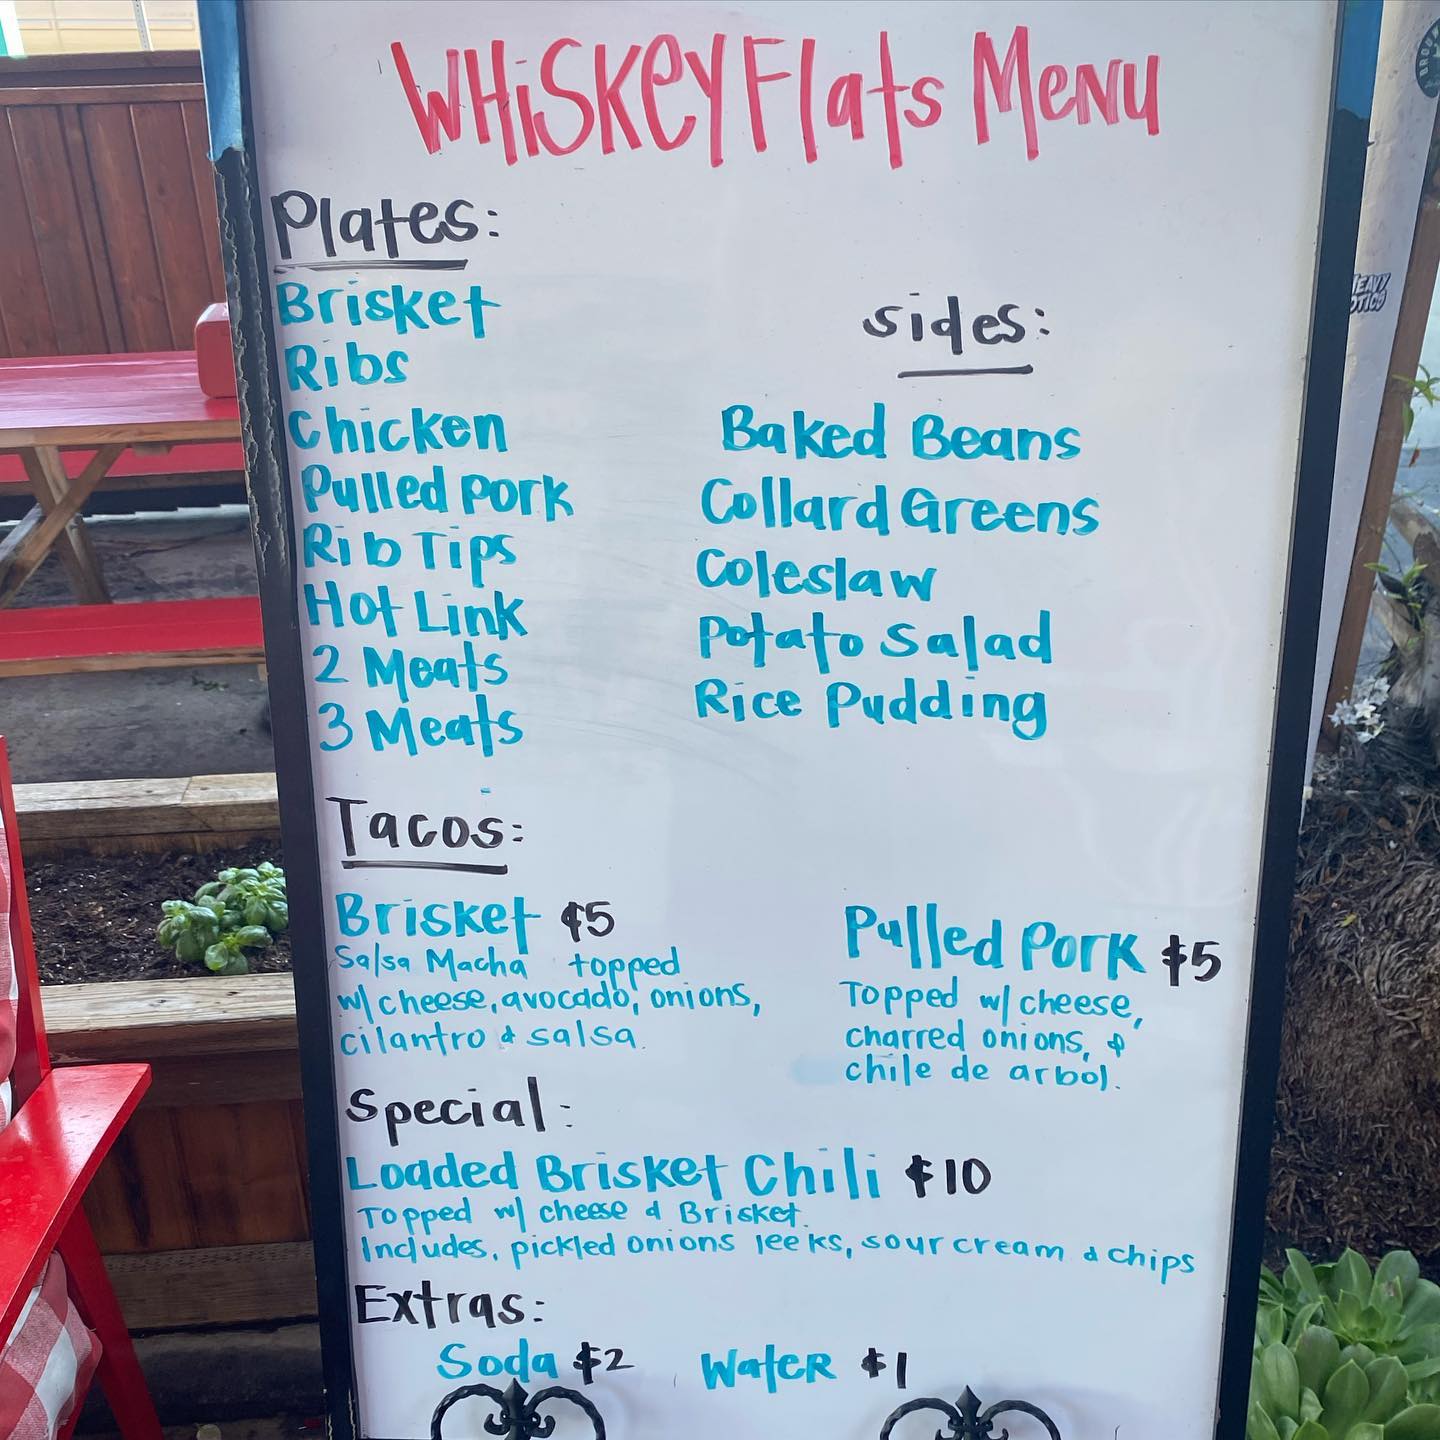 WHiSKEY Flats Menu
Plates:
Brisket
Ribs
Chicken
Pulled Pork
Rib Tips
Hot Link
2 Meats
3 Meats
sides:
Baked Beans
Collard Greens
Coleslaw
Potato Salad
Rice Pudding
Tacos:
Brisket $5
Salsa Macha topped
w/ cheese, avocado, onions,
cilantro & salsa.
Pulled Pork $5
Topped w/ cheese,
charred onions, &
chile de arbol.
Special:
Loaded Brisket Chili $10
Topped w/ cheese & Brisket.
Includes, pickled onions leeks, sour cream & chips
Extras:
Soda $2 Water $1